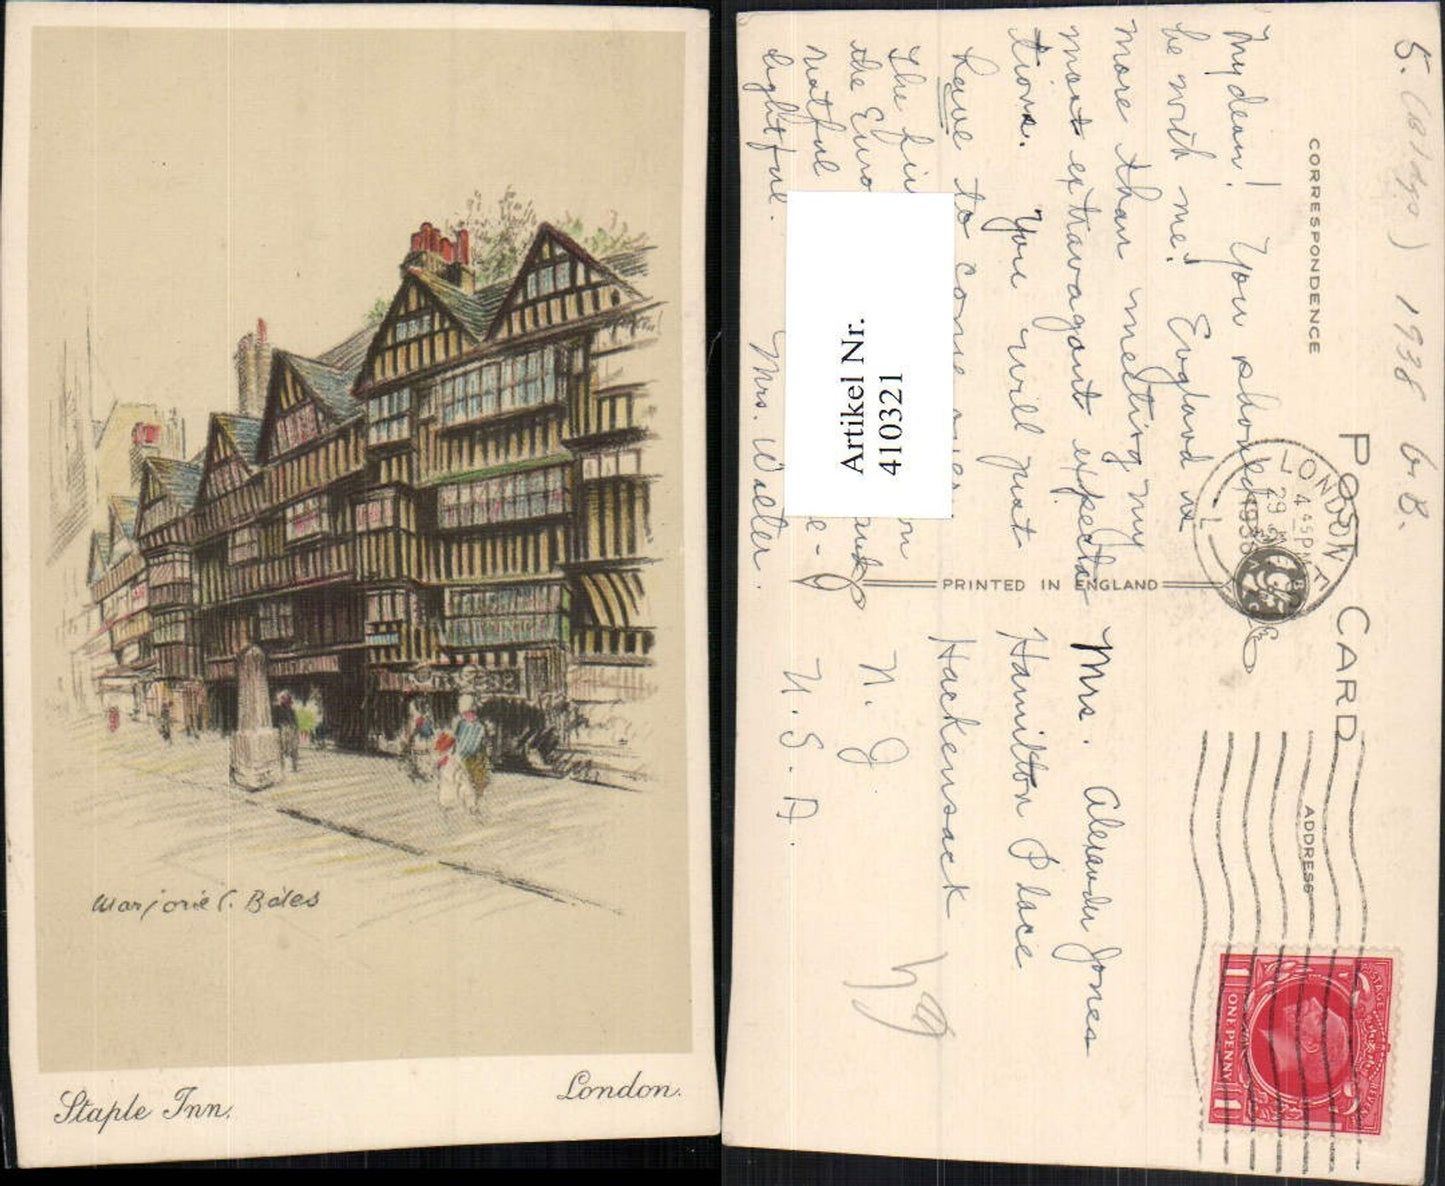 Marjorie C. Bates
Staple Inn.
London.
1938
CORRESPONDENCE
POST CARD
ADDRESS
PRINTED IN ENGLAND
My dear! You should
be with me! England is
more than meeting my
most extravagant expecta
tions. You will just
have to come
The
the Euro
lightful.
Mrs. Wieter.
Artikel Nr.
410321
Mrs. Alexander Jones
Hamilton Place
Hackensack
N. J.
U. S. A.
LONDON
4 45 PM
29
1936
ONE PENNY
1 1
POSTAGE